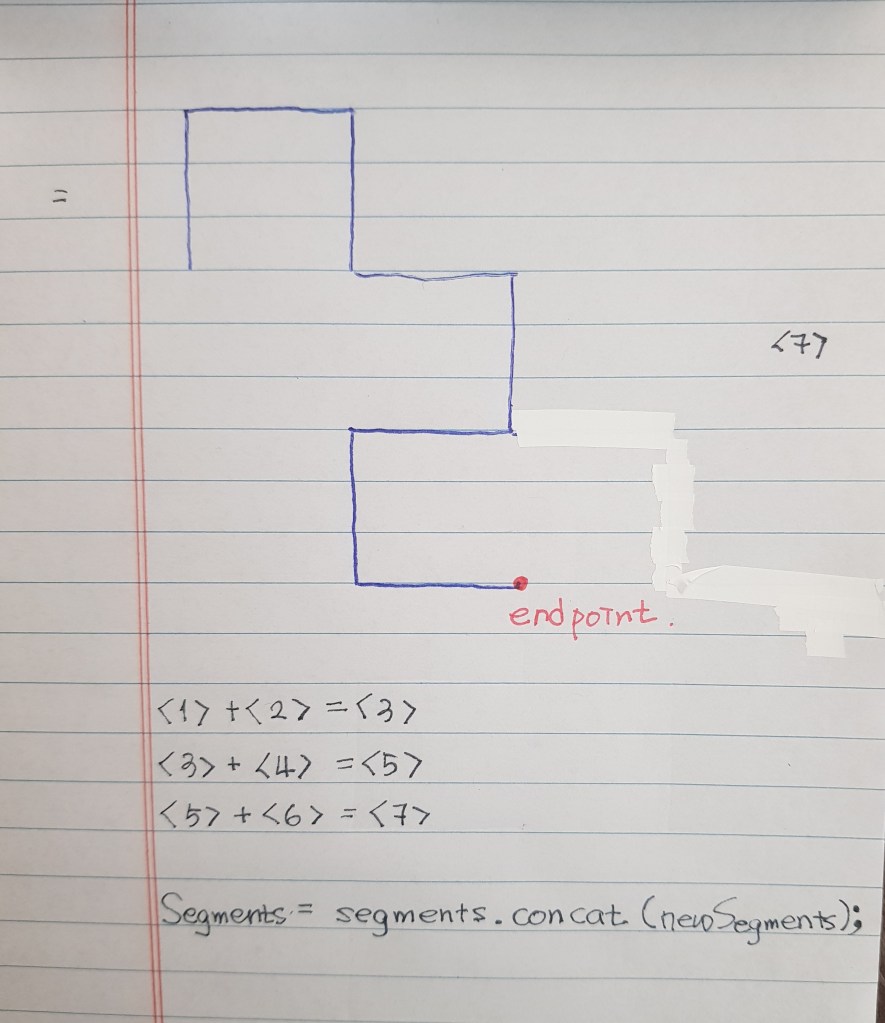 =
<7>
endpoint.
<1> + <2> = <3>
<3> + <4> = <5>
<5> + <6> = <7>
Segments = segments.concat(newSegments);